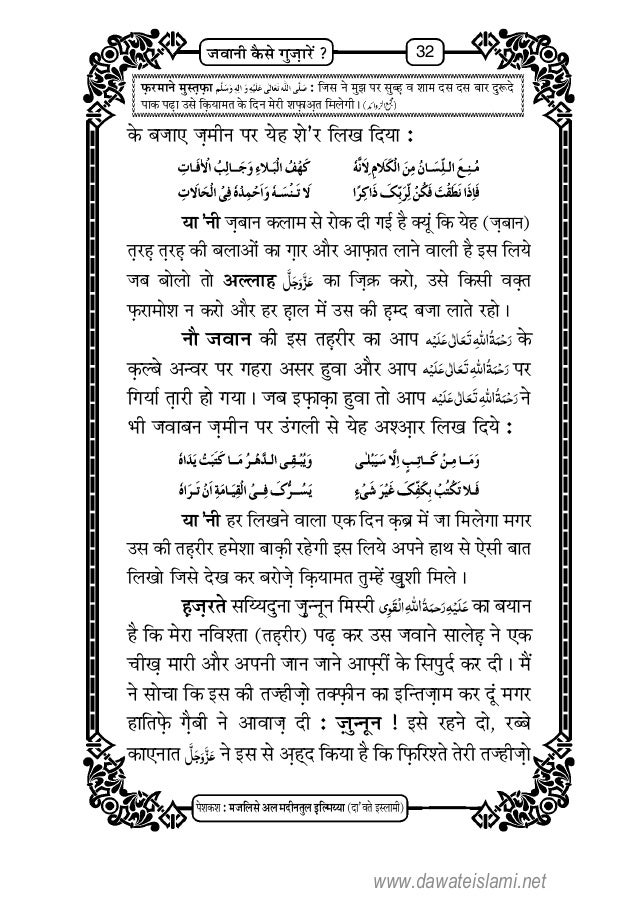 जवानी कैसे गुज़ारें ?
32
फ़रमाने मुस्त़फ़ा صَلَّى اللهُ تَعَالٰى عَلَيْهِ وَاٰلِهٖ وَسَلَّم : जिस ने मुझ पर सुब्ह़ व शाम दस दस बार दुरूदे
पाक पढ़ा उसे क़ियामत के दिन मेरी शफ़ाअ़त मिलेगी। (مجمع الزوائد)
के बजाए ज़मीन पर येह शे'र लिख दिया :
مُنِعَ اللِّسَانُ مِنَ الْكَلَامِ لِاَنَّهٗ كَهْفُ الْبَلَاءِ وَجَالِبُ الْاٰفَاتِ
فَاِذَا نَطَقْتَ فَكُنْ لِّرَبِّكَ ذَاكِرًا لَا تَنْسَهٗ وَاَحْمِدْهُ فِى الْحَالَاتِ
या'नी ज़बान कलाम से रोक दी गई है क्यूं कि येह (ज़बान)
त़रह़ त़रह़ की बलाओं का ग़ार और आफ़ात लाने वाली है इस लिये
जब बोलो तो अल्लाह عَزَّوَجَلَّ का ज़िक्र करो, उसे किसी वक़्त
फ़रामोश न करो और हर ह़ाल में उस की ह़म्द बजा लाते रहो ।
नौ जवान की इस तह़रीर का आप رَحْمَةُ اللهِ تَعَالٰى عَلَيْه के
क़ल्बे अन्वर पर गहरा असर हुवा और आप رَحْمَةُ اللهِ تَعَالٰى عَلَيْه पर
गिर्या त़ारी हो गया । जब इफ़ाक़ा हुवा तो आप رَحْمَةُ اللهِ تَعَالٰى عَلَيْه ने
भी जवाबन ज़मीन पर उंगली से येह अश्आ़र लिख दिये :
وَمَا مِنْ كَاتِبٍ اِلَّا سَيَبْلٰى وَيُبْقِى الدَّهْرُ مَا كَتَبَتْ يَدَاهُ
فَلَا تَكْتُبْ بِكَفِّكَ غَيْرَ شَىْءٍ يَسُرُّكَ فِى الْقِيَامَةِ اَنْ تَرَاهُ
या'नी हर लिखने वाला एक दिन क़ब्र में जा मिलेगा मगर
उस की तह़रीर हमेशा बाक़ी रहेगी इस लिये अपने हाथ से ऐसी बात
लिखो जिसे देख कर बरोज़े क़ियामत तुम्हें ख़ुशी मिले ।
ह़ज़रते सय्यिदुना ज़ुन्नून मिस्री عَلَيْهِ رَحْمَةُ اللهِ الْقَوِى का बयान
है कि मेरा नविश्ता (तह़रीर) पढ़ कर उस जवाने सालेह़ ने एक
चीख़ मारी और अपनी जान जाने आफ़रीं के सिपुर्द कर दी । मैं
ने सोचा कि इस की तज्हीज़ो तक्फ़ीन का इन्तिज़ाम कर दूं मगर
हातिफ़े ग़ैबी ने आवाज़ दी : ज़ुन्नून ! इसे रहने दो, रब्बे
काएनात عَزَّوَجَلَّ ने इस से अ़ह्द किया है कि फ़िरिश्ते तेरी तज्हीज़ो
पेशकश : मजलिसे अल मदीनतुल इल्मिय्या (दा'वते इस्लामी)
www.dawateislami.net